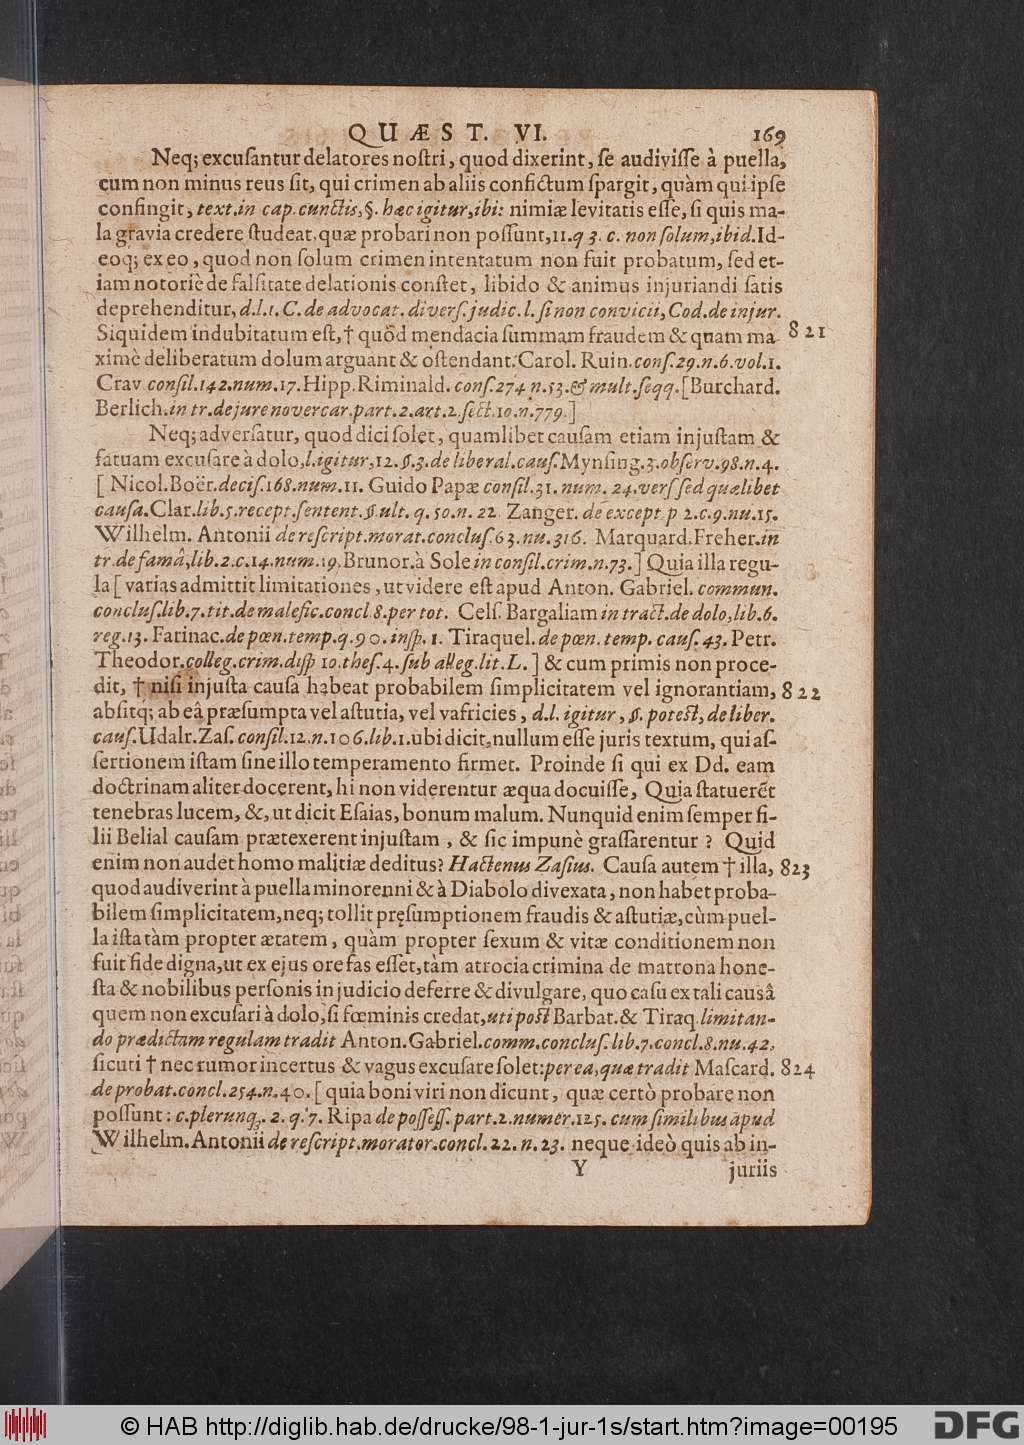 QUÆST. VI. 169
Neq; excuſantur delatores noſtri, quod dixerint, ſe audiviſſe à puella,
cum non minus reus ſit, qui crimen ab aliis confictum ſpargit, quàm qui ipſe
confingit, text.in cap.cunctis,§. hæc igitur,ibi: nimiæ levitatis eſſe, ſi quis ma-
la gravia credere ſtudeat, quæ probari non poſſunt,11.q 3. c. non ſolum,ibid.Id-
eoq; ex eo, quod non ſolum crimen intentatum non fuit probatum, ſed et-
iam notoriè de falſitate delationis conſtet, libido & animus injuriandi ſatis
deprehenditur, d.l.1.C.de advocat.diverſ.judic.l.ſi non convicii, Cod.de injur.
Siquidem indubitatum eſt, † quòd mendacia ſummam fraudem & quam ma 821
ximè deliberatum dolum arguant & oſtendant. Carol. Ruin.conſ.29.n.6.vol.1.
Crav conſil.142.num.17.Hipp.Riminald. conſ.274.n.53.& mult.ſeqq.[Burchard.
Berlich.in tr.de jure novercar.part.2.art.2.ſect.10.n.779.]
Neq; adverſatur, quod dici ſolet, quamlibet cauſam etiam injuſtam &
fatuam excuſare à dolo,l.igitur,12.§.3.de liberal.cauſ.Mynſing.3.obſerv.98.n.4.
[ Nicol.Boër.deciſ.168.num.11. Guido Papæ conſil.31.num. 24.verſ ſed quælibet
cauſa.Clar.lib.5.recept.ſentent.§.ult. q. 50.n. 22. Zanger. de except p 2.c.9.nu.15.
Wilhelm. Antonii de reſcript.morat.concluſ.63.nu.316. Marquard.Freher.in
tr.de famâ,lib.2.c.14.num.19.Brunor.à Sole in conſil.crim.n.73.] Quia illa regu-
la [ varias admittit limitationes, ut videre eſt apud Anton. Gabriel. commun.
concluſ.lib.7.tit.de malefic.concl 8.per tot. Celſ. Bargaliam in tract.de dolo,lib.6.
reg.13. Farinac.de pœn.temp.q.90.inſp.1. Tiraquel. de pœn. temp. cauſ. 43. Petr.
Theodor.colleg.crim.diſp 10.theſ.4.ſub alleg.lit.L. ] & cum primis non proce-
dit, † niſi injuſta cauſa habeat probabilem ſimplicitatem vel ignorantiam, 822
abſitq; ab eâ præſumpta vel aſtutia, vel vafricies, d.l. igitur, §. poteſt, de liber.
cauſ.Udalr.Zaſ.conſil.12.n.106.lib.1.ubi dicit,nullum eſſe juris textum, qui aſ-
ſertionem iſtam ſine illo temperamento firmet. Proinde ſi qui ex Dd. eam
doctrinam aliter docerent, hi non viderentur æqua docuiſſe, Quia ſtatuerẽt
tenebras lucem, &, ut dicit Eſaias, bonum malum. Nunquid enim ſemper fi-
lii Belial cauſam prætexerent injuſtam, & ſic impunè graſſarentur? Quid
enim non audet homo malitiæ deditus? Hactenus Zaſius. Cauſa autem † illa, 823
quod audiverint à puella minorenni & à Diabolo divexata, non habet proba-
bilem ſimplicitatem, neq; tollit pręſumptionem fraudis & aſtutiæ, cùm puel-
la iſta tàm propter ætatem, quàm propter ſexum & vitæ conditionem non
fuit fide digna, ut ex ejus ore fas eſſet, tàm atrocia crimina de matrona hone-
ſta & nobilibus perſonis in judicio deferre & divulgare, quo caſu ex tali causâ
quem non excuſari à dolo, ſi fœminis credat, uti poſt Barbat.& Tiraq.limitan-
do prædictam regulam tradit Anton.Gabriel.comm.concluſ.lib.7.concl.8.nu.42,
ſicuti † nec rumor incertus & vagus excuſare ſolet: per ea, quæ tradit Maſcard. 824
de probat.concl.254.n.40. [ quia boni viri non dicunt, quæ certò probare non
poſſunt: c.plerunq. 2. q. 7. Ripa de poſſeſſ.part.2.numer.125. cum ſimilibus apud
Wilhelm.Antonii de reſcript.morator.concl.22.n.23. neque ideò quis ab in-
Y juriis
© HAB http://diglib.hab.de/drucke/98-1-jur-1s/start.htm?image=00195 DFG